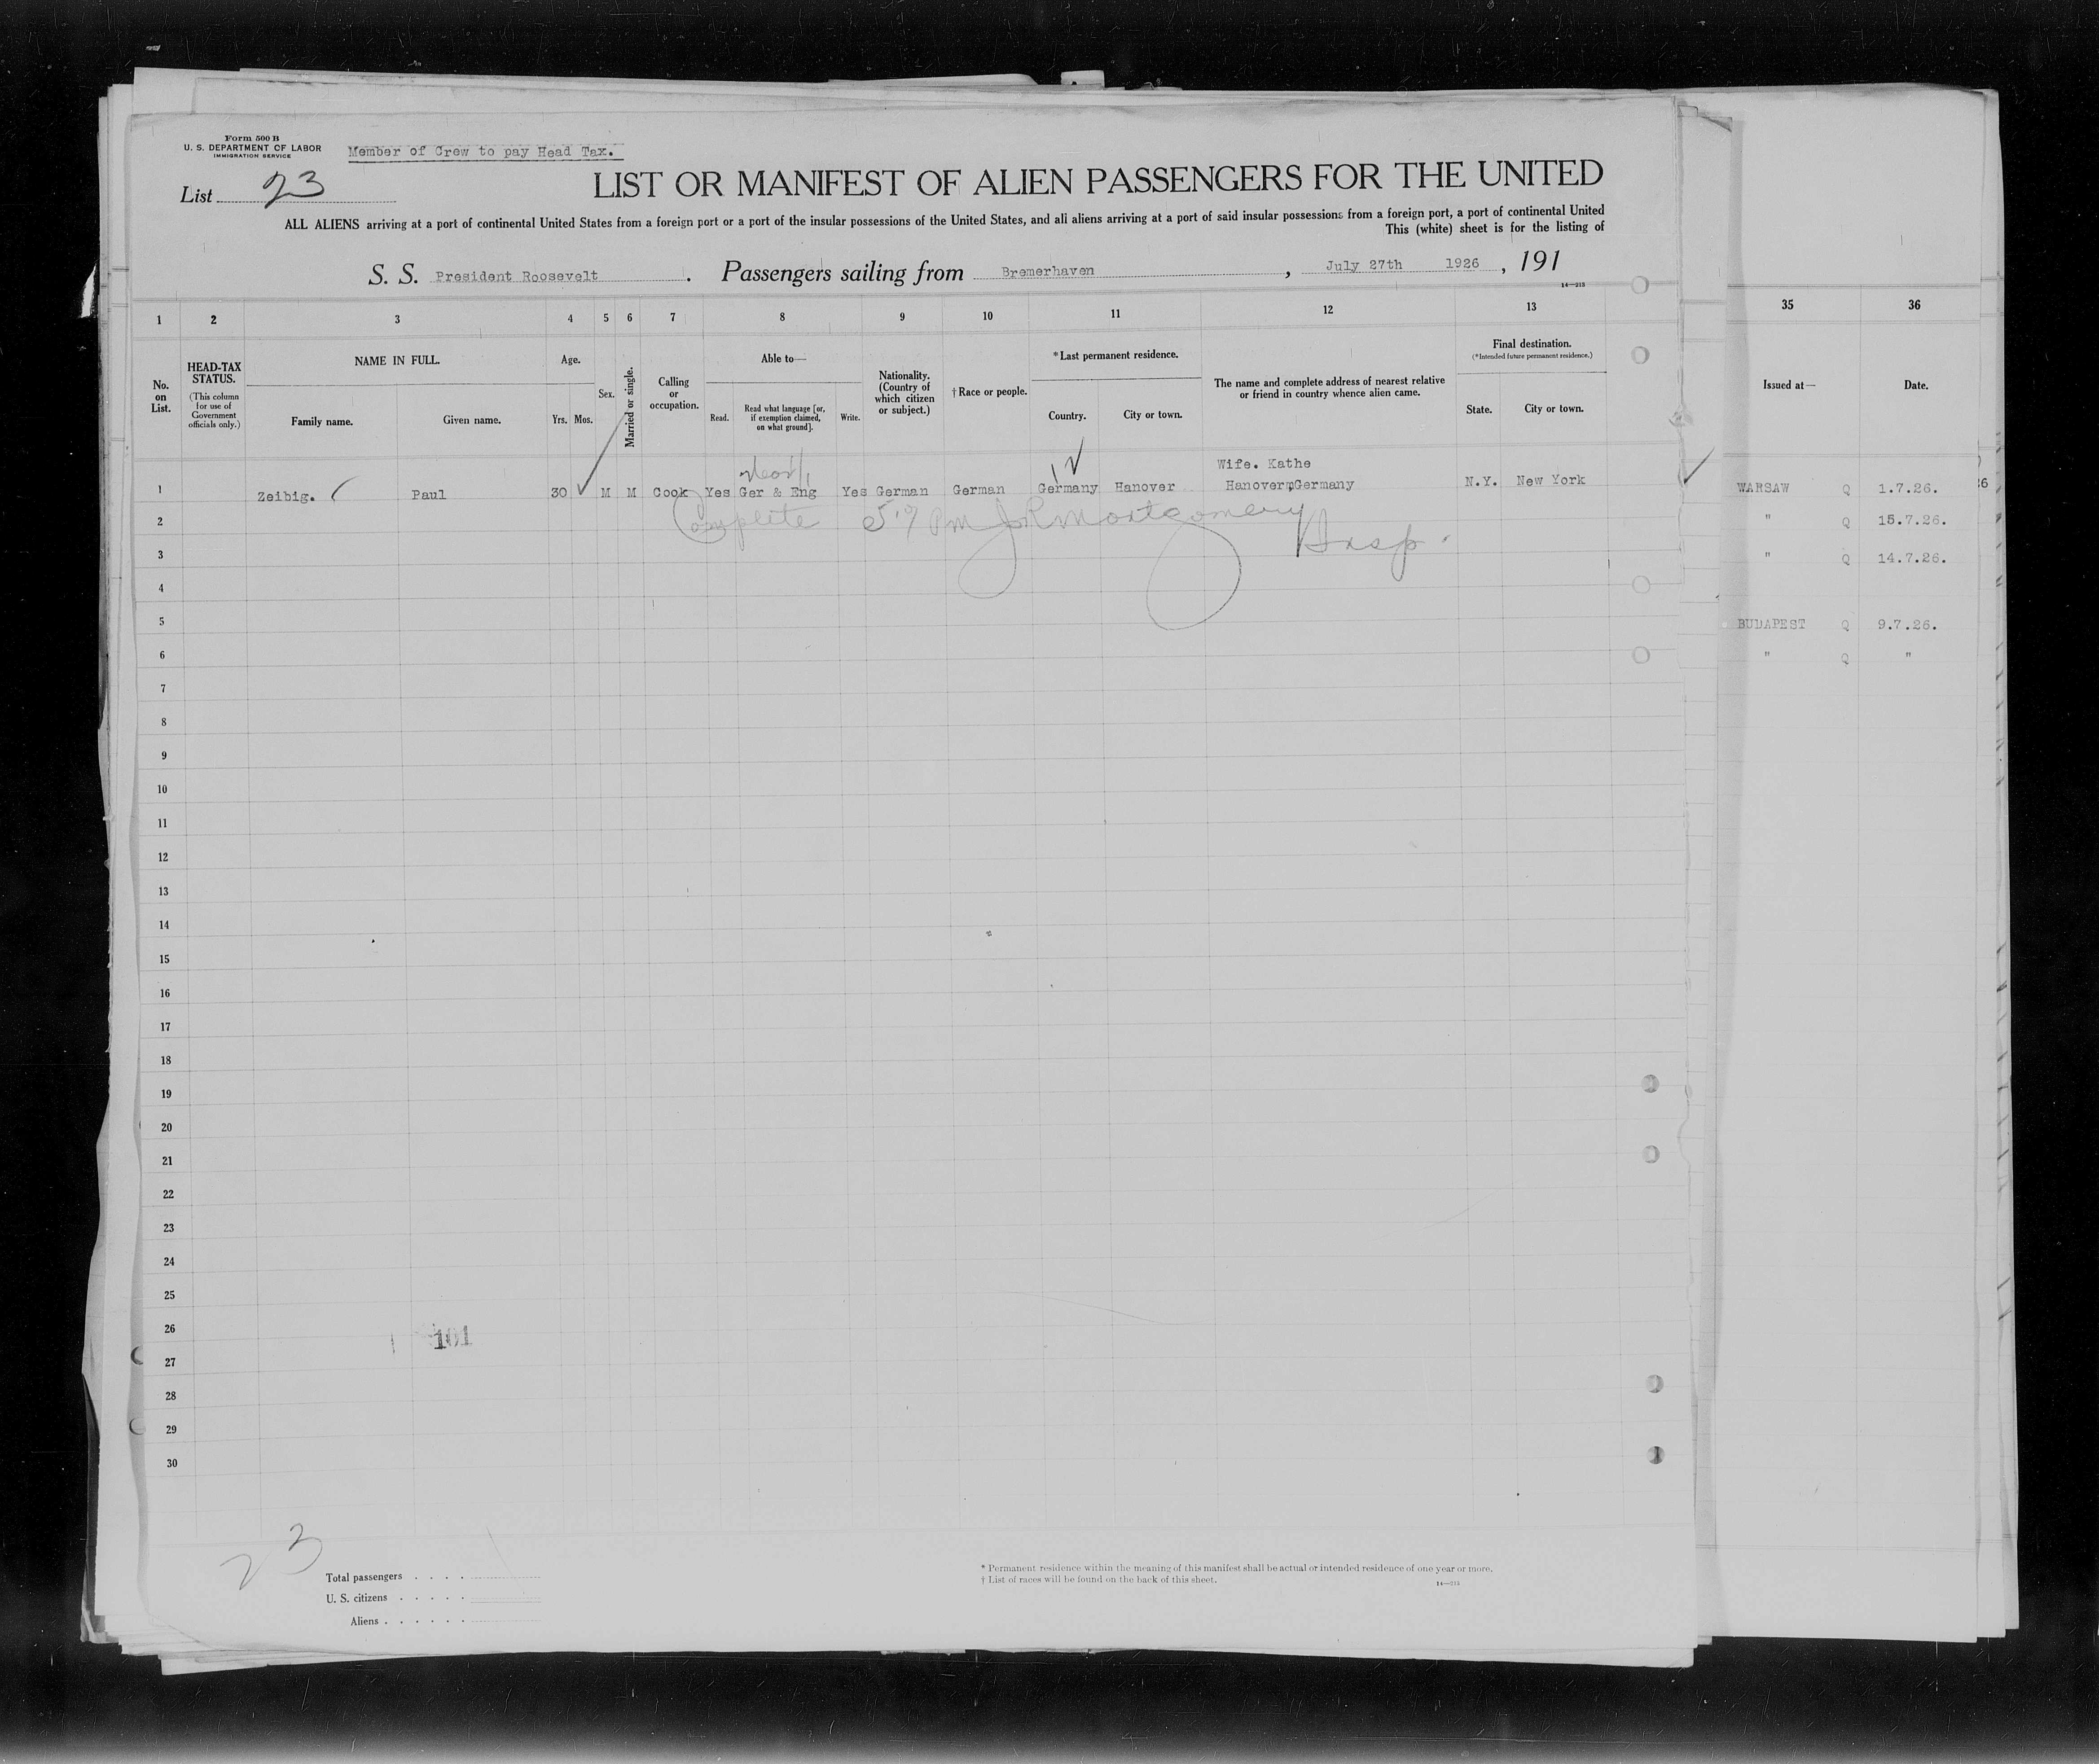 Form 500 B
U. S. DEPARTMENT OF LABOR
IMMIGRATION SERVICE
Member of Crew to pay Head Tax.
List 23
LIST OR MANIFEST OF ALIEN PASSENGERS FOR THE UNITED
ALL ALIENS arriving at a port of continental United States from a foreign port or a port of the insular possessions of the United States, and all aliens arriving at a port of said insular possessions from a foreign port, a port of continental United
This (white) sheet is for the listing of
S. S. President Roosevelt. Passengers sailing from Bremerhaven, July 27th 1926, 191
14—213
1 2 3 4 5 6 7 8 9 10 11 12 13
No. on List.
HEAD-TAX STATUS.
(This column for use of Government officials only.)
NAME IN FULL.
Family name. Given name.
Age.
Yrs. Mos.
Sex.
Married or single.
Calling or occupation.
Able to—
Read. Read what language [or, if exemption claimed, on what ground]. Write.
Nationality. (Country of which citizen or subject.)
† Race or people.
* Last permanent residence.
Country. City or town.
The name and complete address of nearest relative or friend in country whence alien came.
Final destination.
(*Intended future permanent residence.)
State. City or town.
Wife. Kathe
1 Zeibig. Paul 30 M M Cook Yes Ger & Eng Yes German German Germany Hanover Hanover, Germany N.Y. New York
Complete 5:9 PM JR Montgomery
Insp.
2
3
4
5
6
7
8
9
10
11
12
13
14
15
16
17
18
19
20
21
22
23
24
25
26
101
27
28
29
30
23
Total passengers
U. S. citizens
Aliens
* Permanent residence within the meaning of this manifest shall be actual or intended residence of one year or more.
† List of races will be found on the back of this sheet.
14—213
35 36
Issued at— Date.
WARSAW Q 1.7.26. 26
" Q 15.7.26.
" Q 14.7.26.
BUDAPEST Q 9.7.26.
" Q "